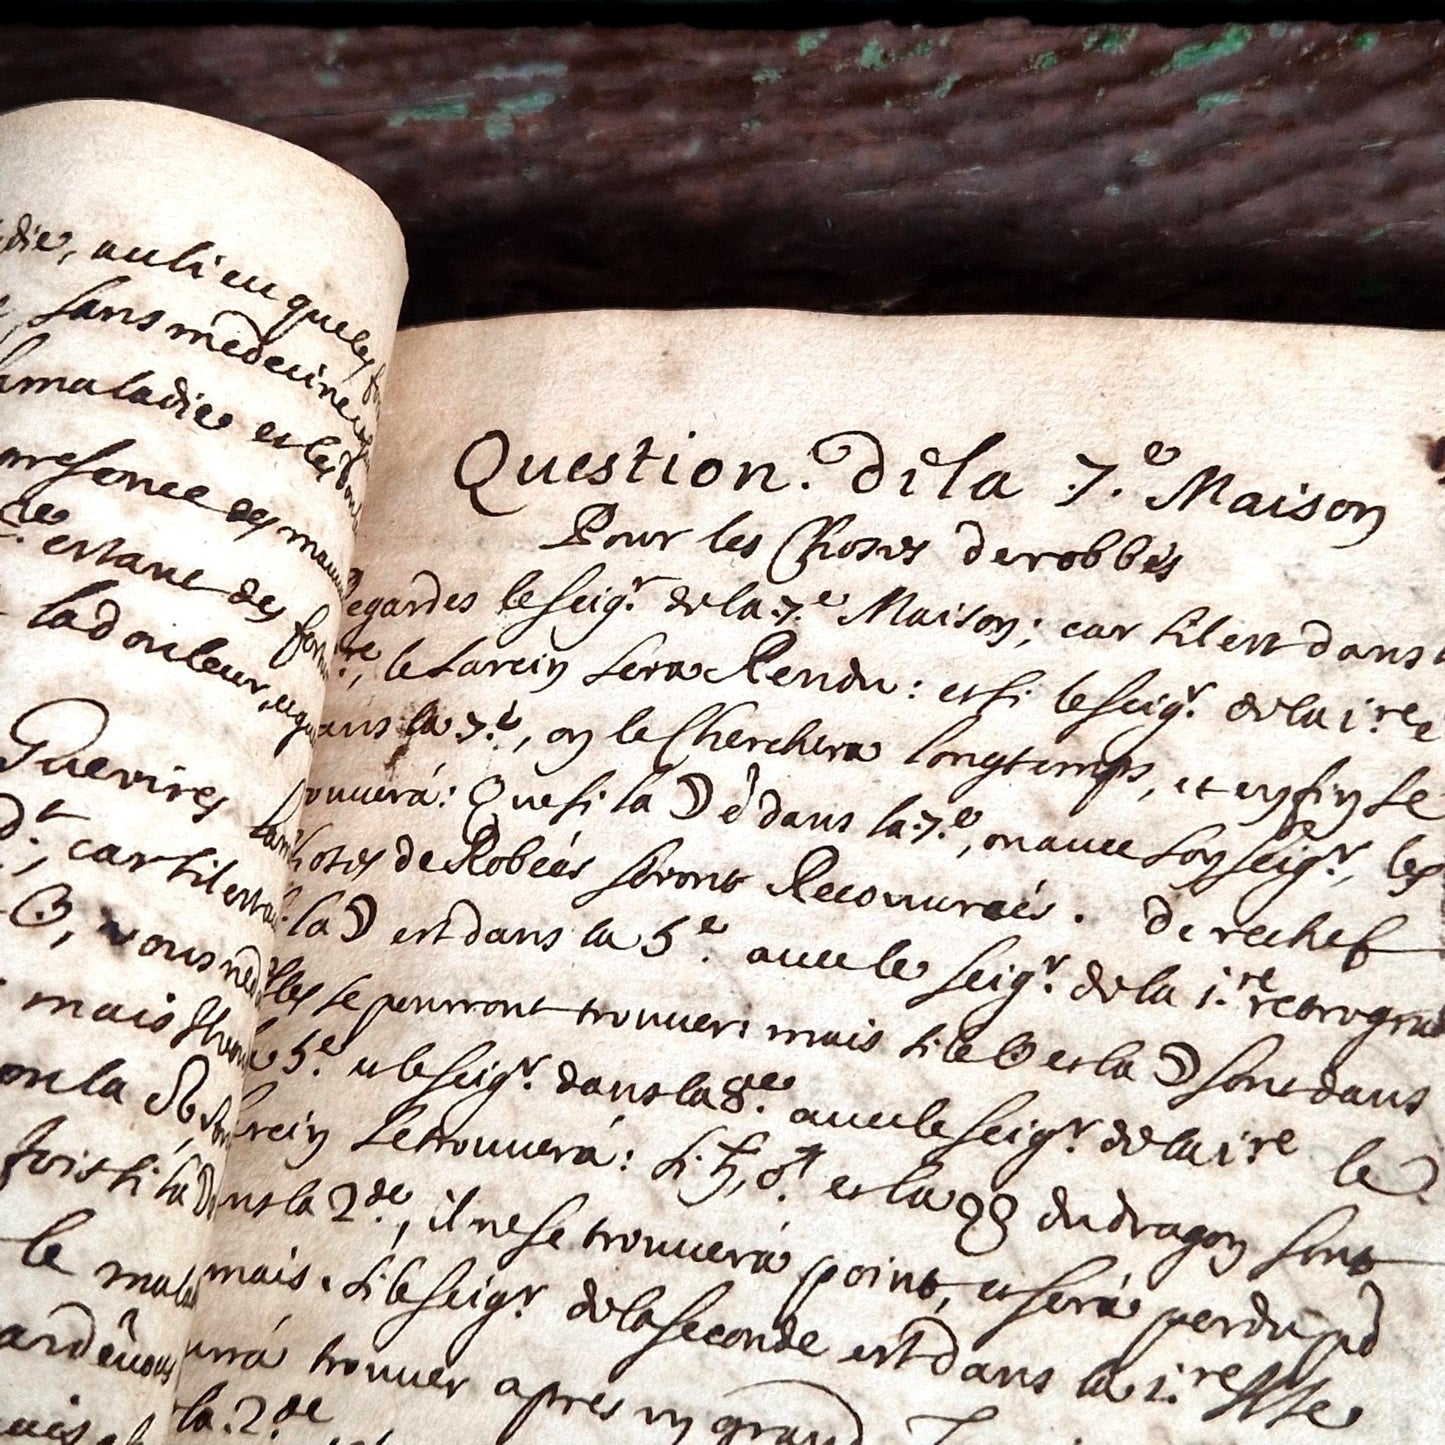 die, au lieu que les
sans medecine
la maladie et les
presence des mau
estant des for
la douleur, et q
Guerires
car sil est
☉, vous ne
mais
ou la
fois si la
le mala
Question. de la 7.e Maison
Pour les Choses derobbés
Regardes le seig.r de la 7.e Maison; car sil est dans
re, le Larcin sera Rendu: et si le seig.r de la 1.re e
ans la 7.e, on le Cherchera longtemps, et enfin se
ouuerá: Que si la ☽ é dans la 7.e, ou auec son seig.r, les
hoses deRobées seront Recouurées. derechef
la ☽ est dans la 5.e auec le seig.r de la 1.re retrogra
lles se pourront trouuer: mais si le ☉ et la ☽ sont dans
5.e et le seig.r dans la 8.e auec le seig.r de la 1.re le
rcin se trouuerá: si ♄, ♂ et la ☋ du dragon sont
ns la 2.de, il ne se trouuerá point, et será perdu
mais. si le seig.r de la seconde est dans la 1.re Il se
urrá trouuer apres un grand
la 2.de